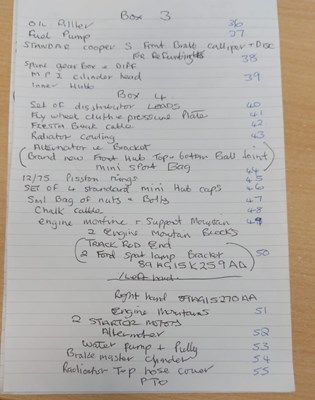 Box 3
OIL Filter 36
Fuel Pump 37
STANDAR Cooper S Front Brake calliper + Disc
For Refurbishing 38
Spare gear Box + DIFF
M P I cilender head 39
Inner Hubs
Box 4
Set of distributor LEADS 40
Fly wheel clutch + pressure Plate 41
FIESTA Brake cable 42
Radiator couling 43
Alternator + Bracket
(Brand new Front Hub Top + bottom Ball joint)
mini sport Bag 44
12/75 Pisston Rings 45
SET OF 4 standard mini Hub caps 46
Small Bag of nuts + Bolts 47
Chalk cable 48
engine mantune + Support Mountain 49
2 Engine Mountain Blocks
(TRACK ROD End
2 Ford spot lamp Bracket 50
89AG15K259AA)
Left hand
Right hand 89AG15270AA
Engine Mountains 51
2 STARTOR MOTORS
Alternator 52
Water Pump + Pully 53
Brake master Cylinder 54
Radiator Top hose cover 55
PTO